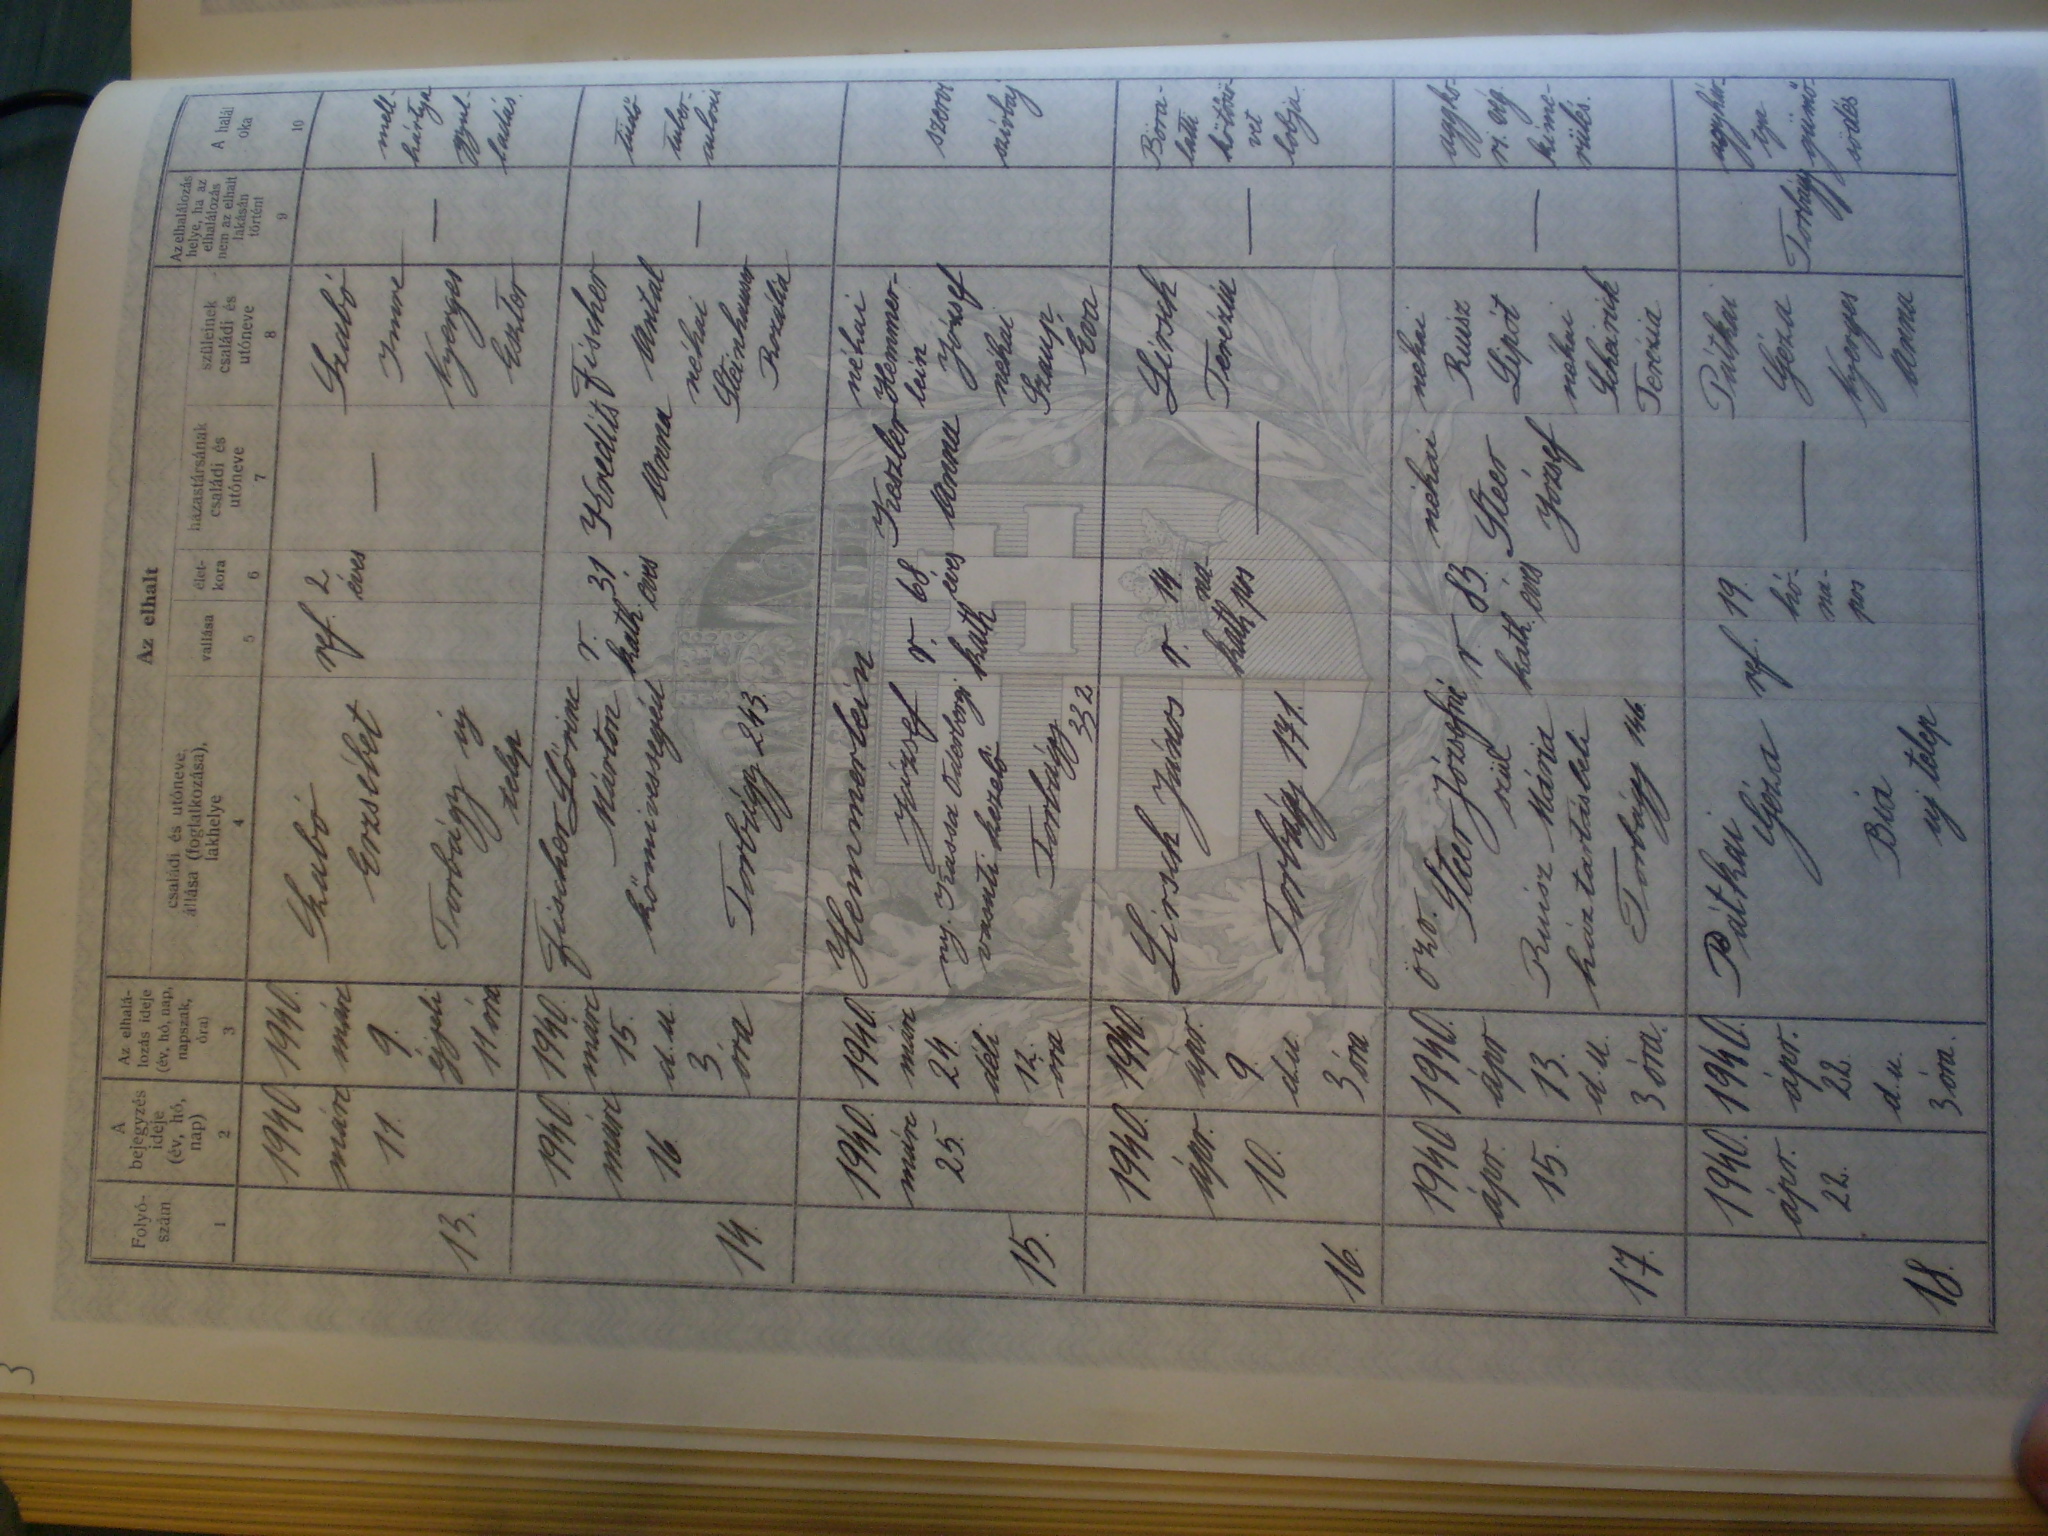 3
Az elhalt
Folyó-
szám
A
bejegyzés
ideje
(év, hó,
nap)
Az elhalá-
lozás ideje
(év, hó, nap,
napszak,
óra)
családi és utóneve,
állása (foglalkozása),
lakhelye
vallása
élet-
kora
házastársának
családi és
utóneve
szüleinek
családi és
utóneve
Az elhalálozás
helye, ha az
elhalálozás
nem az elhalt
lakásán
történt
A halál
oka
1
2
3
4
5
6
7
8
9
10
13.
1940
márc
11.
1940.
márc
9.
éjjeli
11 óra
Szabó
Erzsébet
Torbágy új
telep
ref.
2
éves
—
Szabó
Imre
Nyerges
Eszter
—
mell-
hártya
gyul-
ladás.
14.
1940.
márc
16.
1940.
márc
15.
d.u.
3
óra
Fischer Lőrinc
Márton
kőmívessegéd
Torbágy 243.
r.
kath.
31
éves
Kredits
Anna
Fischer
Antal
néhai
Steinhauser
Rozália
—
tüdő
tuber-
culosis
15.
1940.
márc
25.
1940.
márc
24.
déli
12.
óra
Hemmerlein
József
ny. Kassa Oderbergi
vasuti kezelő
Torbágy
332
r.
kath
68
éves
Keszler
Anna
néhai
Hemmer-
lein
József
néhai
Éva
szervi
szívbaj
16.
1940.
ápr.
10.
1940.
ápr.
9.
d.u.
3 óra
Lirsch János
Torbágy 171.
r.
kath
14.
na-
pos
—
Lirsch
Terézia
—
Bőra-
latti
kötőszö-
vet
lobja.
17.
1940
ápr.
15.
1940.
ápr
13.
d.u.
3 óra.
özv.
Steer Józsefné
szül
Ruisz Mária
háztartásbeli
Torbágy 146.
r
kath.
83.
éves
néhai
Steer
József
néhai
Ruisz
Lipót
néhai
Terézia
—
agyko-
ri vég
kime-
rülés.
18.
1940.
ápr.
22.
1940.
ápr.
22.
d.u.
3 óra.
Pátkai
Géza
Bia
uj telep
ref.
19.
hó-
na-
pos
—
Pátkai
Géza
Nyerges
Anna
Torbágy
agyhár-
tya
gümő-
södés